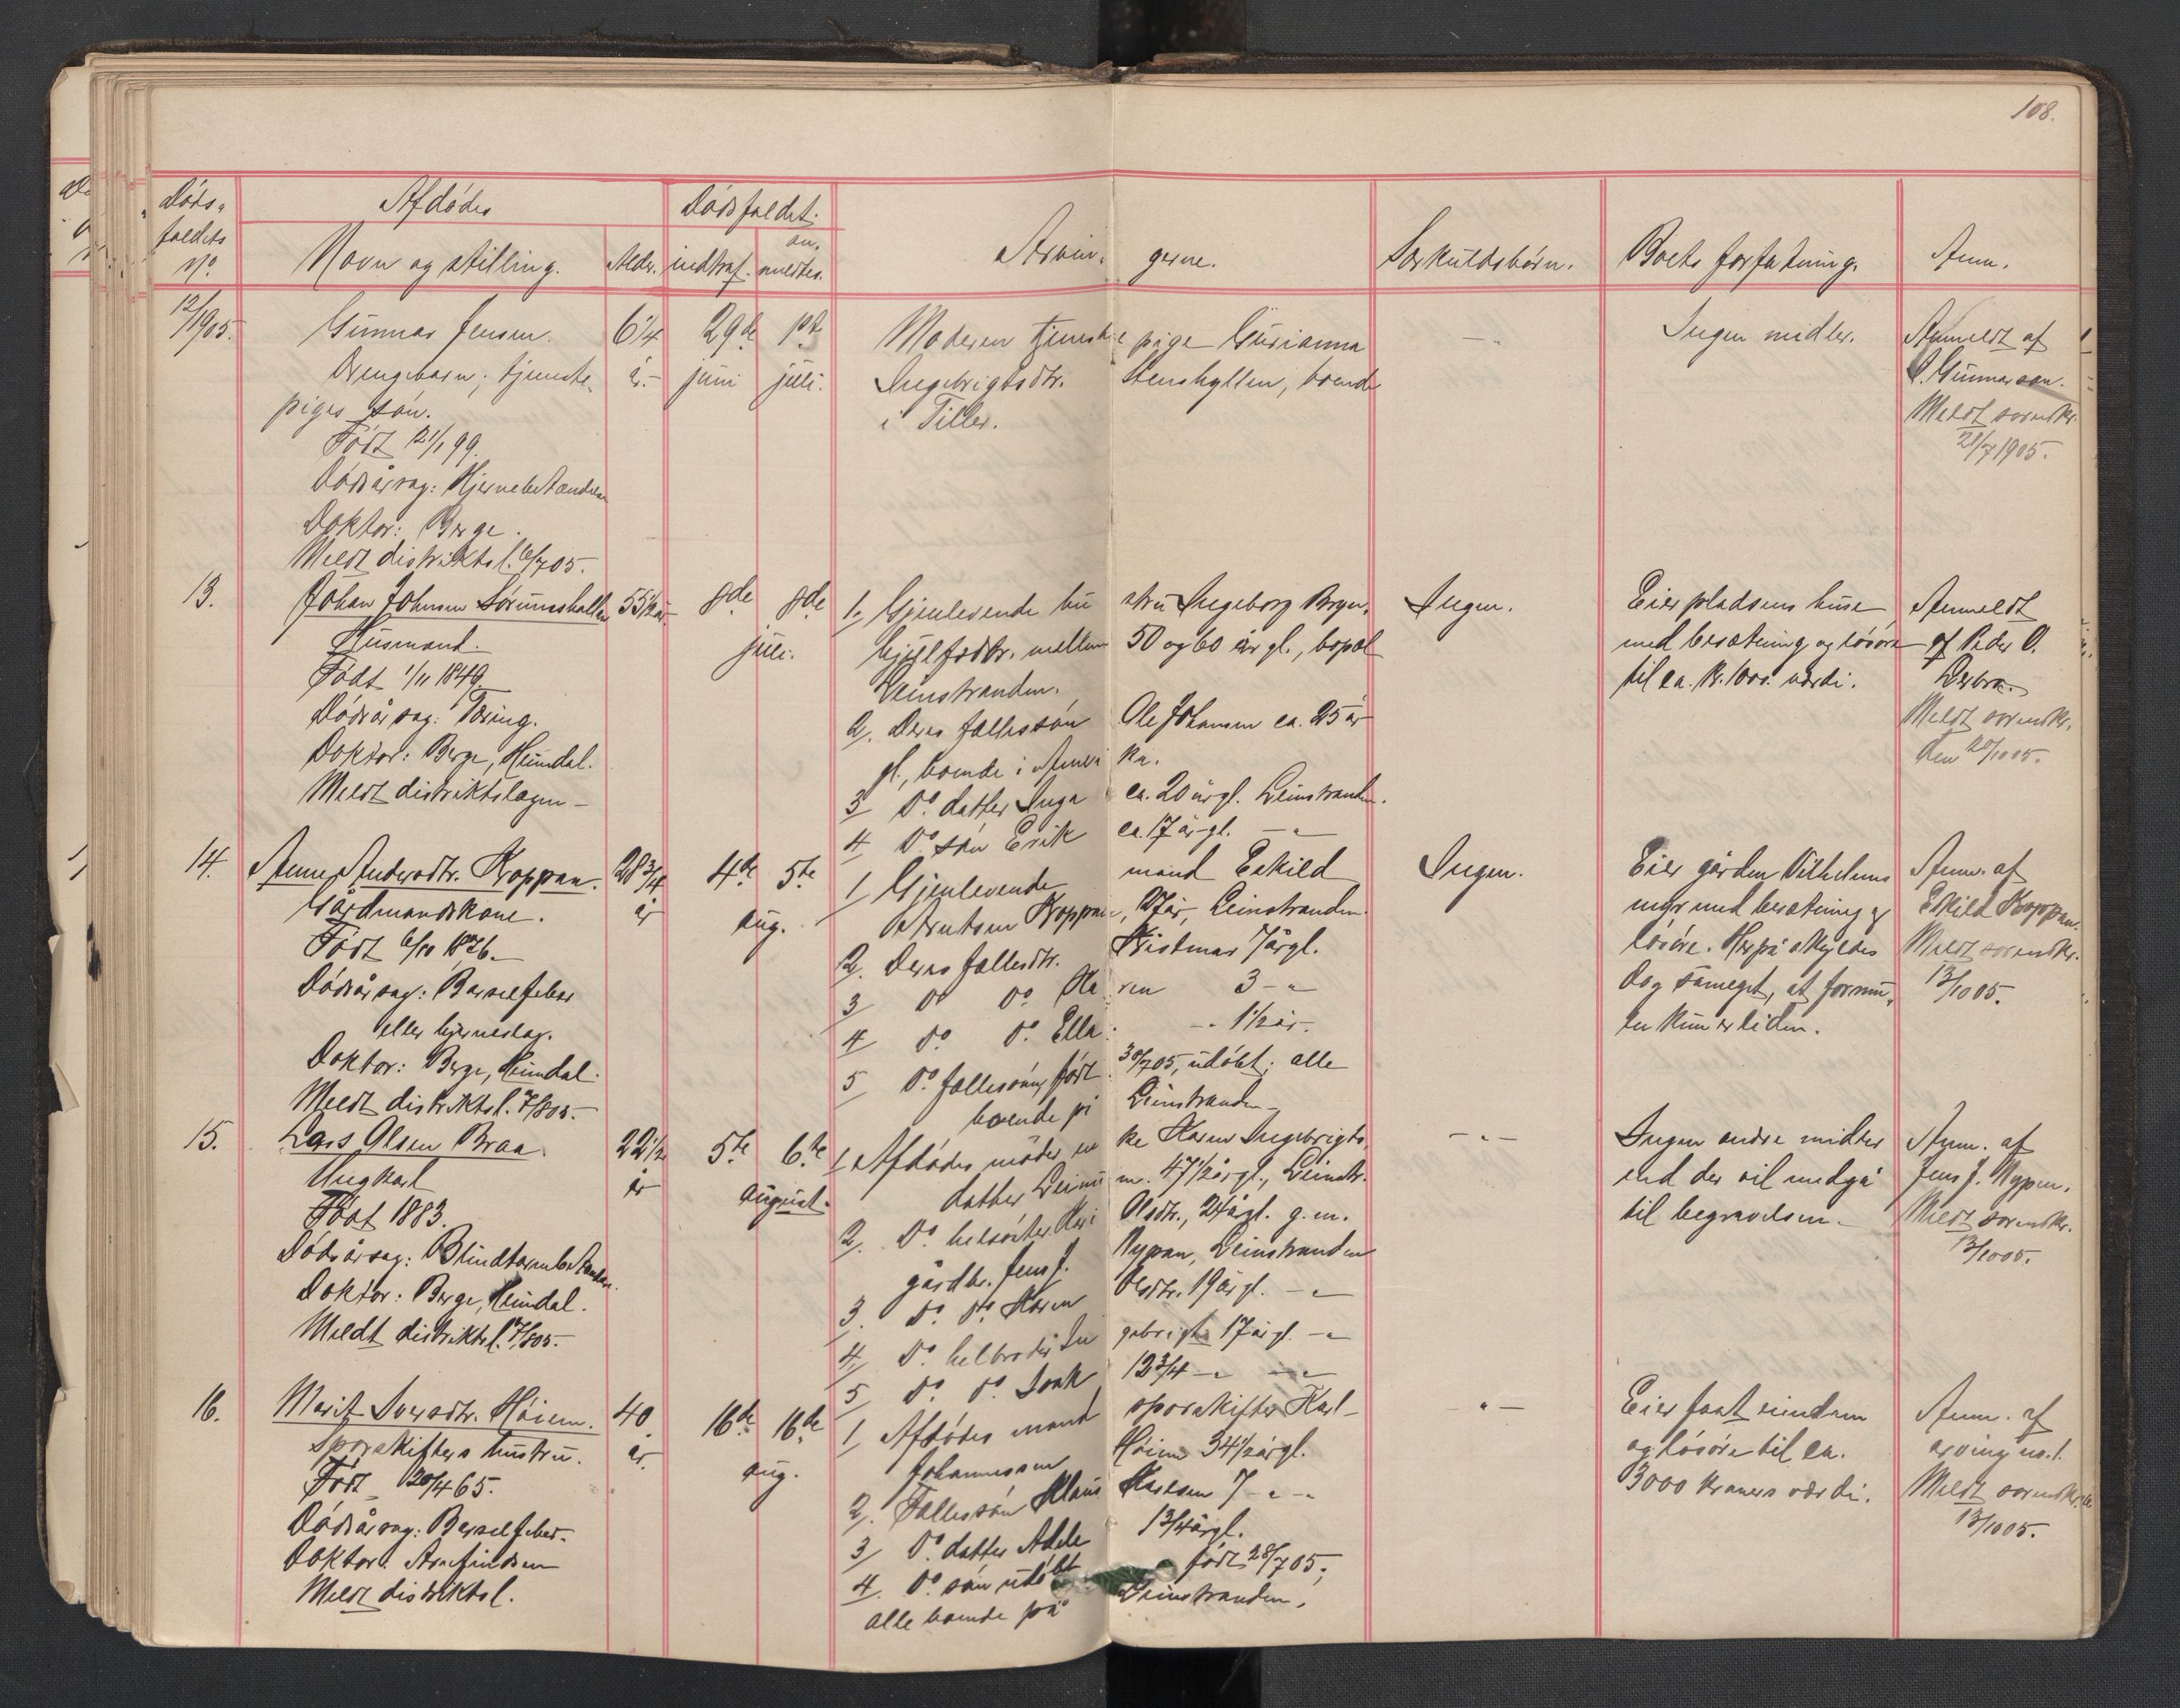 108.
Døds-
faldets
No.
Afdødes
Navn og stilling.
Alder.
Dødsfaldet.
indtraf.
an-
meldtes.
Arvingerne.
Særkuldsbørn.
Boets forfatning.
Anm.
12/1905.
Gunnar Jensen.
Drengebarn, tjeneste-
piges søn.
Født 21/1 99.
Dødsårsag: Hjernebetændelse
Doktor: Berge.
Meldt distriktsl. 6/7 05.
6 1/4
år.
29de
juni
1ste
juli.
Moderen tjenestepige Gurianna
Ingebrigtsdtr. Stenshyllen, boende
i Tiller.
Ingen midler.
Anmeldt af
Gunnarson.
Meldt sorenskr.
21/7 1905.
13.
Johan Johnsen Sørumshallen
Husmand.
Født 1/11 1849.
Dødsårsag: Tæring.
Doktor: Berge, Heimdal.
Meldt distriktslægen
55 1/2 år
8de
8de
juli.
1. Gjenlevende hustru Ingeborg Bryn-
hjulfsdtr. mellem 50 og 60 år gl., bopæl
Leinstranden.
2. Deres fællessøn Ole Johansen ca. 25 år
gl., boende i Amerika.
3 Do datter Inga ca. 20 årgl. Leinstranden.
4 Do søn Erik ca. 17 år gl. — " —
Ingen.
Eier pladsens huse
med besætning og løsøre
til ca. Kr. 1000 værdi.
Anmeldt
af Peder O.
Meldt sorenskr.
den 20/10 05.
14.
Anne Andersdtr. Kroppan.
Gårdmandskone.
Født 6/10 1876.
Dødsårsag: Barselfeber
eller hjerneslag.
Doktor: Berge, Heimdal.
Meldt distriktsl. 7/8 05.
28 3/4
år
4de
5te
aug.
1 Gjenlevende mand Eskild
Arntsen Kroppan, 27 år, Leinstranden.
2. Deres fællesdtr. Kristmar 7 årgl.
3 Do Do Karen 3 - " -
4 Do Do Ella - " 1 1/2 år.
5 Do fællessøn, født 30/7 05, udøbt; alle
boende på Leinstranden
Ingen.
Eier gården Vilhelms
myr med besætning og
løsøre. Herpå skyldes
dog sameget, at formu-
en kun er liden.
Anm. af
Eskild Kroppan.
Meldt sorenskr.
13/10 05.
15.
Lars Olsen Braa.
Ungkarl
Født 1883.
Dødsårsag: Blindtarmbetændelse.
Doktor: Berge, Heimdal.
Meldt distriktsl. 7/8 05.
22 1/2
år
5te
6te
august.
1 Afdødes moder enke Karen Ingebrigts-
datter 47 1/2 årgl., Leinstr.
2. Do helsøster Kari Olsdtr., 24 årgl. g. m.
gårdbr. Jens J. Nypan, Leinstranden
3. Do Do Karen Olsdtr. 19 årgl. — " —
4. Do helbroder Ingebrigt 17 årgl. — " —
5 Do Do Isak 12 3/4 — " — — " —
— " —
Ingen andre midler
end der vil medgå
til begravelsen.
Anm. af
Jens J. Nypan.
Meldt sorenskr.
13/10 05.
16.
Marit Iversdtr. Høiem.
Sporskifters hustru.
Født 20/4 65.
Dødsårsag: Barselfeber.
Doktor: Arnfindsen
Meldt distriktsl.
40
år.
16de
16de
aug.
1, Afdødes mand sporskifter Karl
Johannessen Høiem 34 1/2 årgl.
2. Fællessøn Klaus Karlsen 7 - " -
3, Do datter Adele 1 3/4 årgl.
4. Do søn udøbt født 28/7 05;
alle boende på Leinstranden.
— " —
Eier fast eiendom
og løsøre til ca.
3000 kroners værdi.
Anm. af
arving no. 1.
Meldt sorenskr.
13/10 05.